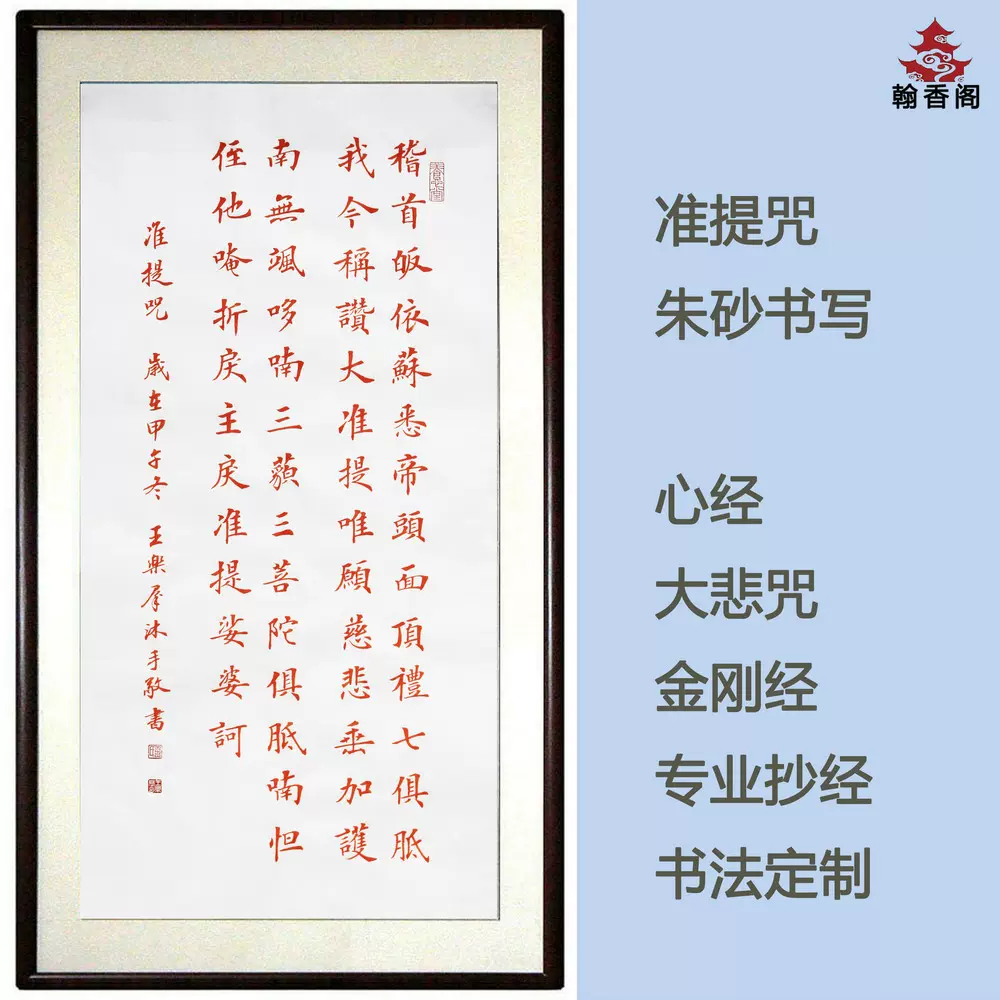 稽首皈依蘇悉帝頭面頂禮七俱胝
我今稱讚大准提唯願慈悲垂加護
南無颯哆喃三藐三菩陀俱胝喃怛
侄他唵折戾主戾准提娑婆訶
准提咒 歲在甲午冬 王樂群沐手敬書
翰香阁
准提咒
朱砂书写
心经
大悲咒
金刚经
专业抄经
书法定制